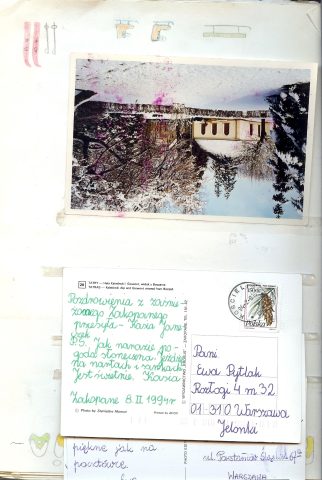 26
Pozdrowienia z zaśnie-
żonego Zakopanego
przesyła - Kasia
P.S. Jak narazie po-
goda słoneczna. Jeździmy
na nartach i sankach.
Jest świetnie. Kasia
Zakopane 8.II.1994r
Polska
Pani
Ewa Pytlak
Rozłogi 4 m 32
01-310 Warszawa
Jelonki
piękne jak na
pocztówce
ul. Powstańców Śląskich
WARSZAWA